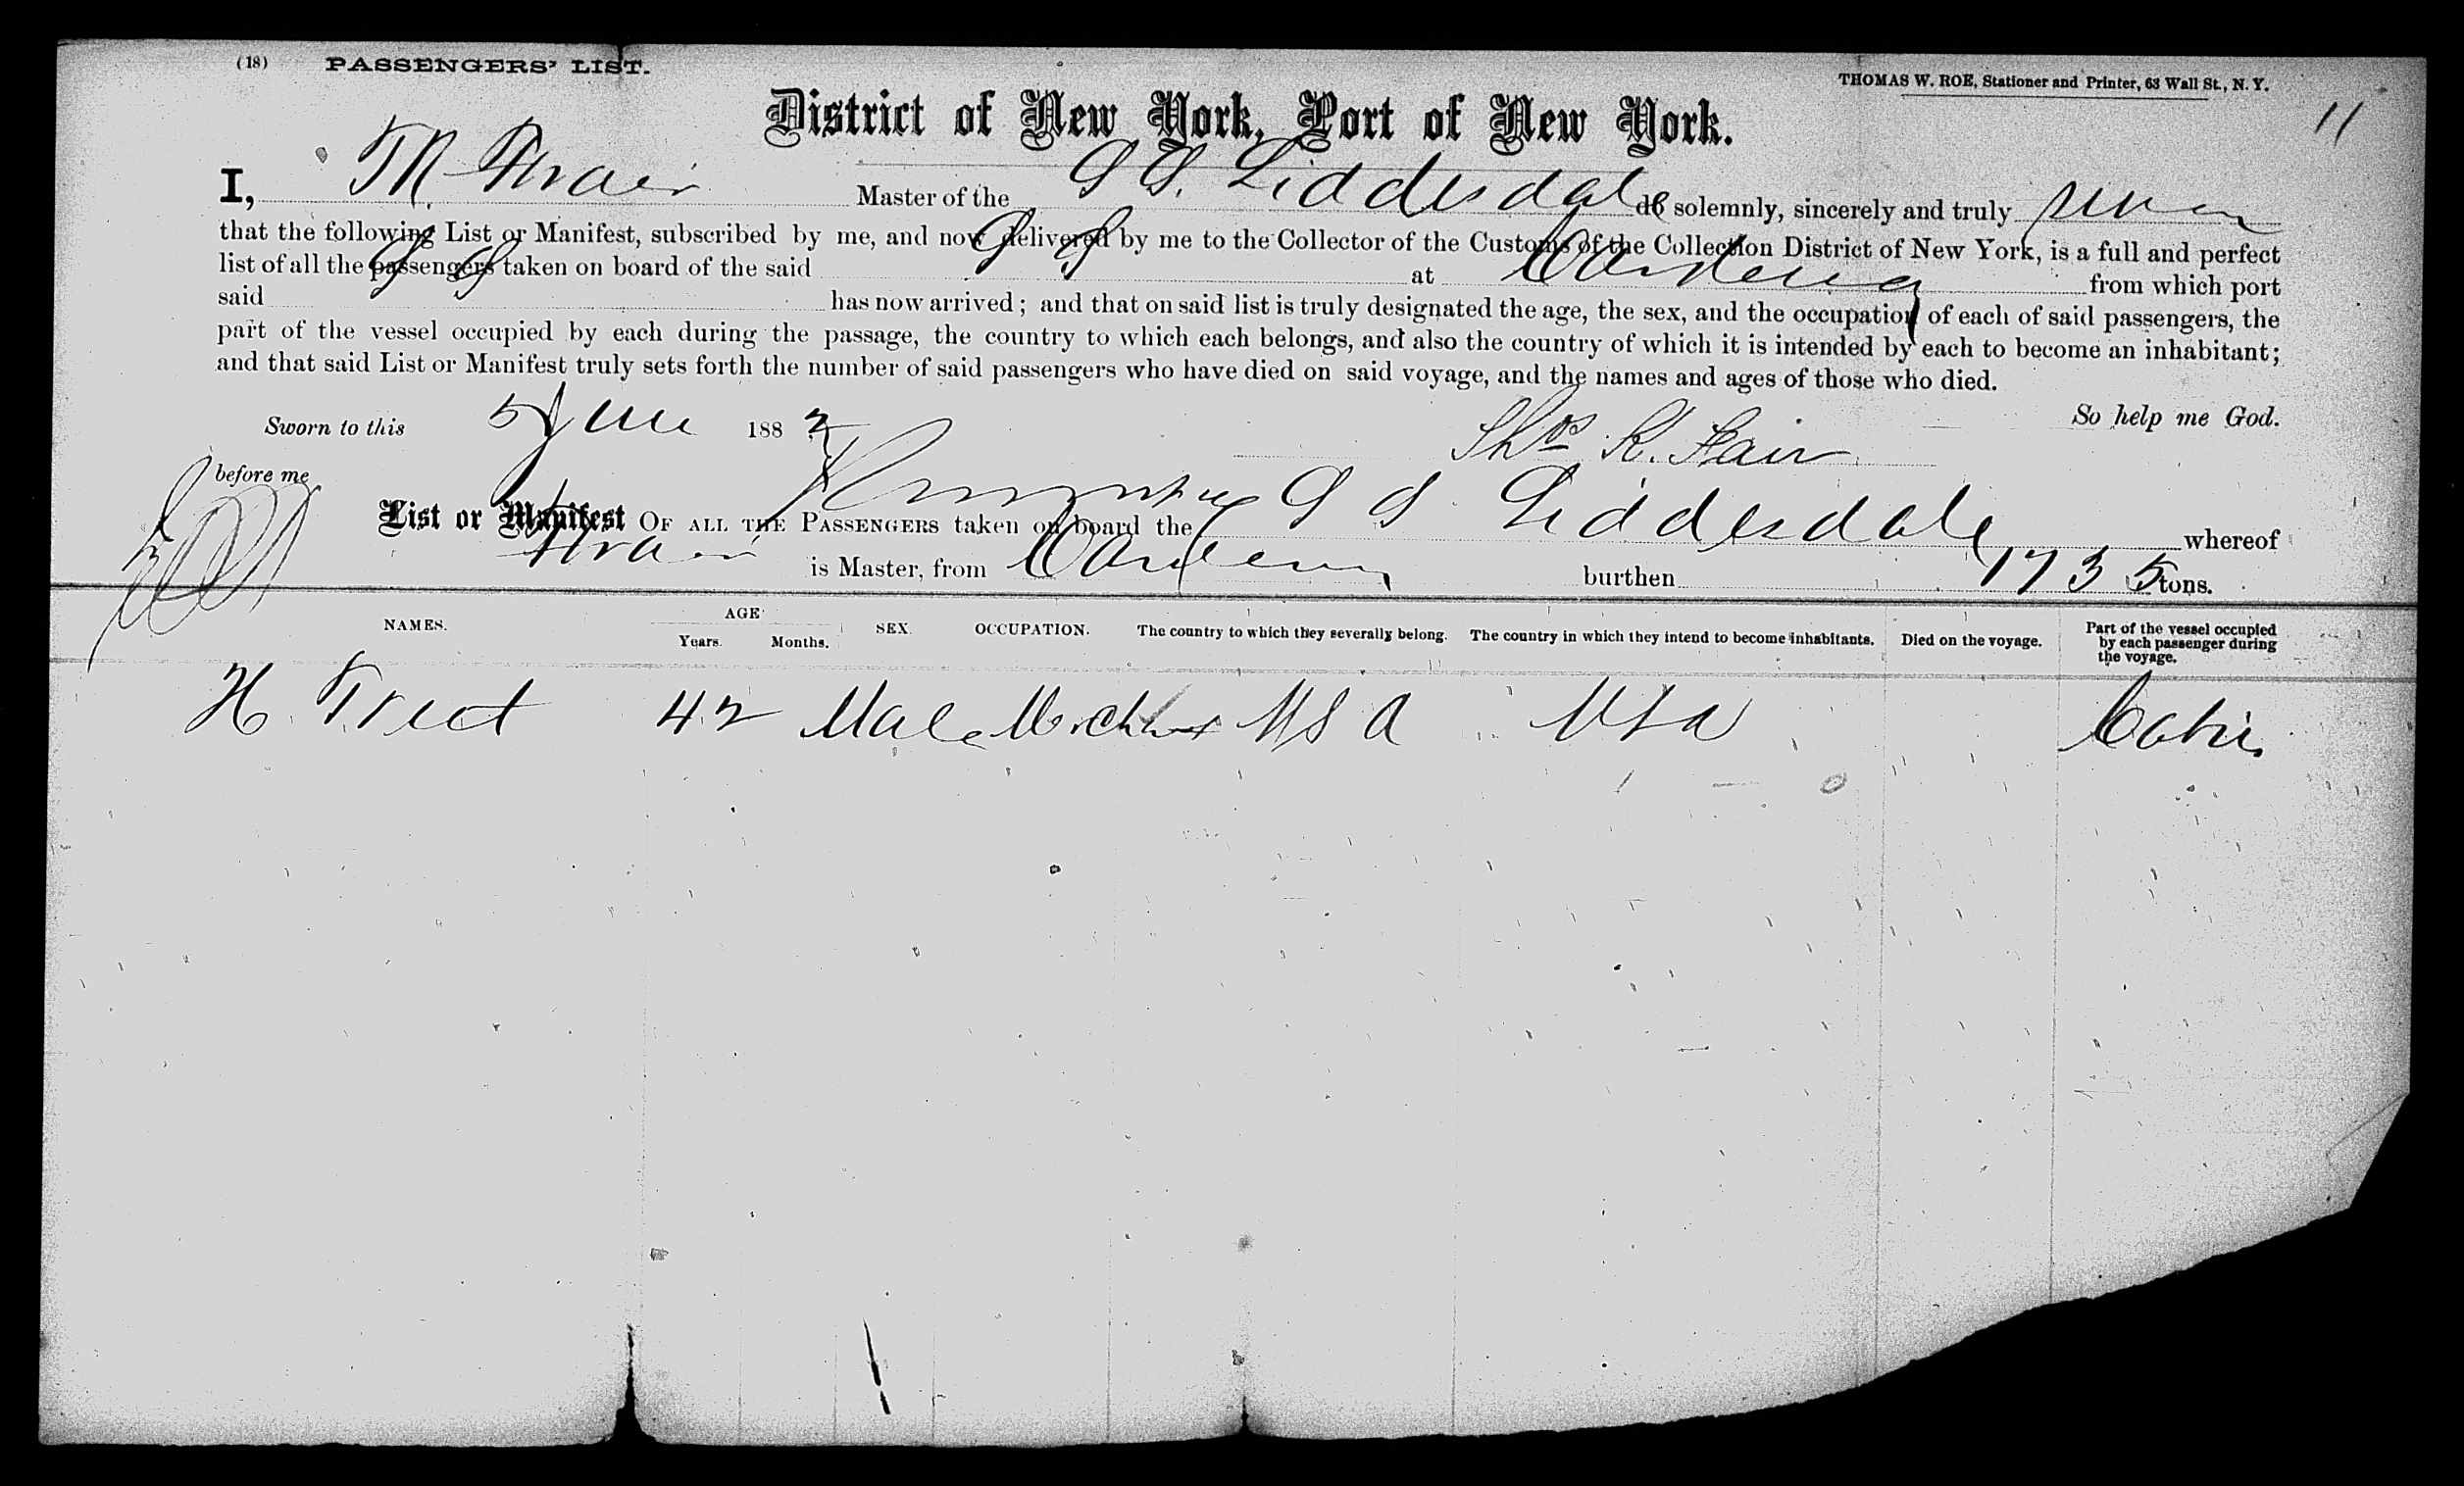 (18) PASSENGERS' LIST.
THOMAS W. ROE, Stationer and Printer, 63 Wall St., N. Y.
11
District of New York, Port of New York.
I, Master of the S S. Liddesdale do solemnly, sincerely and truly swear
that the following List or Manifest, subscribed by me, and now delivered by me to the Collector of the Customs of the Collection District of New York, is a full and perfect
list of all the passengers taken on board of the said S S at from which port
said S S has now arrived; and that on said list is truly designated the age, the sex, and the occupation of each of said passengers, the
part of the vessel occupied by each during the passage, the country to which each belongs, and also the country of which it is intended by each to become an inhabitant;
and that said List or Manifest truly sets forth the number of said passengers who have died on said voyage, and the names and ages of those who died.
So help me God.
Sworn to this 5 June 188
Thos R. Fair
before me
List or Manifest OF ALL THE PASSENGERS taken on board the S S Liddesdale whereof
is Master, from burthen 1735 tons.
NAMES. AGE Years. Months. SEX. OCCUPATION. The country to which they severally belong. The country in which they intend to become inhabitants. Died on the voyage. Part of the vessel occupied by each passenger during the voyage.
H. 42 Male Merchant USA USA Cabin